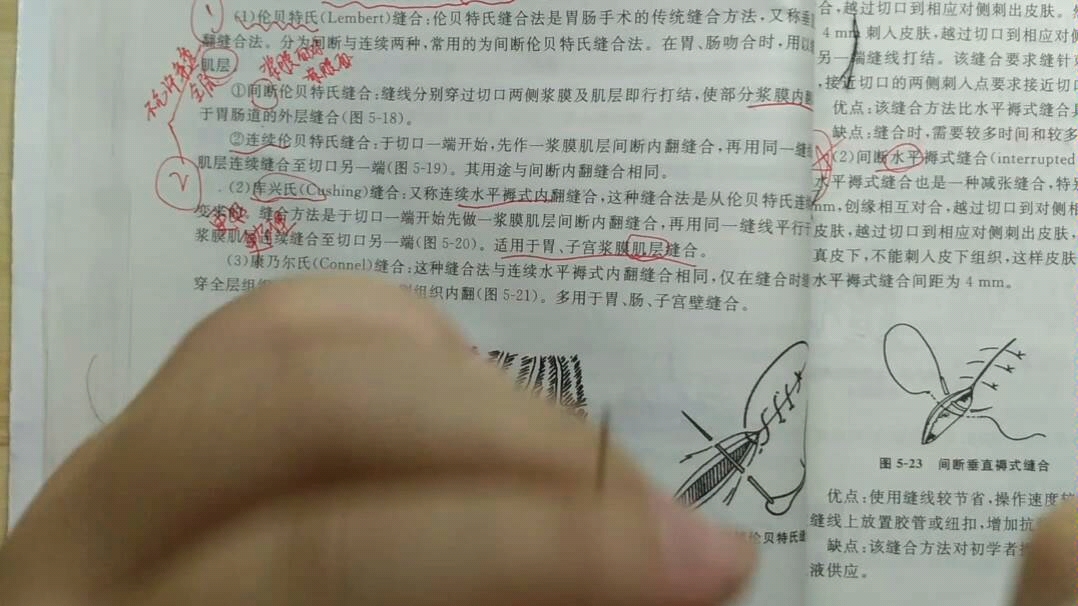 (1)伦贝特氏(Lembert)缝合:伦贝特氏缝合法是胃肠手术的传统缝合方法，又称
翻缝合法。分为间断与连续两种，常用的为间断伦贝特氏缝合法。在胃、肠吻合时，用以
肌层
①间断伦贝特氏缝合:缝线分别穿过切口两侧浆膜及肌层即行打结，使部分浆膜内翻
于胃肠道的外层缝合(图 5-18)。
②连续伦贝特氏缝合:于切口一端开始，先作一浆膜肌层间断内翻缝合，再用同一缝
肌层连续缝合至切口另一端(图 5-19)。其用途与间断内翻缝合相同。
(2)库兴氏(Cushing)缝合:又称连续水平褥式内翻缝合，这种缝合法是从伦贝特氏连
变来 缝合方法是于切口一端开始先做一浆膜肌层间断内翻缝合，再用同一缝线平行于
浆膜肌 连续缝合至切口另一端(图 5-20)。适用于胃、子宫浆膜肌层缝合。
(3)康乃尔氏(Connel)缝合:这种缝合法与连续水平褥式内翻缝合相同，仅在缝合时缝
穿全层组 组织内翻(图 5-21)。多用于胃、肠、子宫壁缝合。
伦贝特氏缝
1
2
合，越过切口到相应对侧刺出皮肤。
4 mm 刺入皮肤，越过切口到相应对
另一端缝线打结。该缝合要求缝针
，接近切口的两侧刺入点要求接近切口
优点:该缝合方法比水平褥式缝合具
缺点:缝合时，需要较多时间和较多
(2)间断水平褥式缝合(interrupted
水平褥式缝合也是一种减张缝合，特别
mm，创缘相互对合，越过切口到对侧相
皮肤，越过切口到相应对侧刺出皮肤，
真皮下，不能刺入皮下组织，这样皮肤
水平褥式缝合间距为 4 mm。
图 5-23 间断垂直褥式缝合
优点:使用缝线较节省，操作速度较
缝线上放置胶管或纽扣，增加抗
缺点:该缝合方法对初学者
液供应。